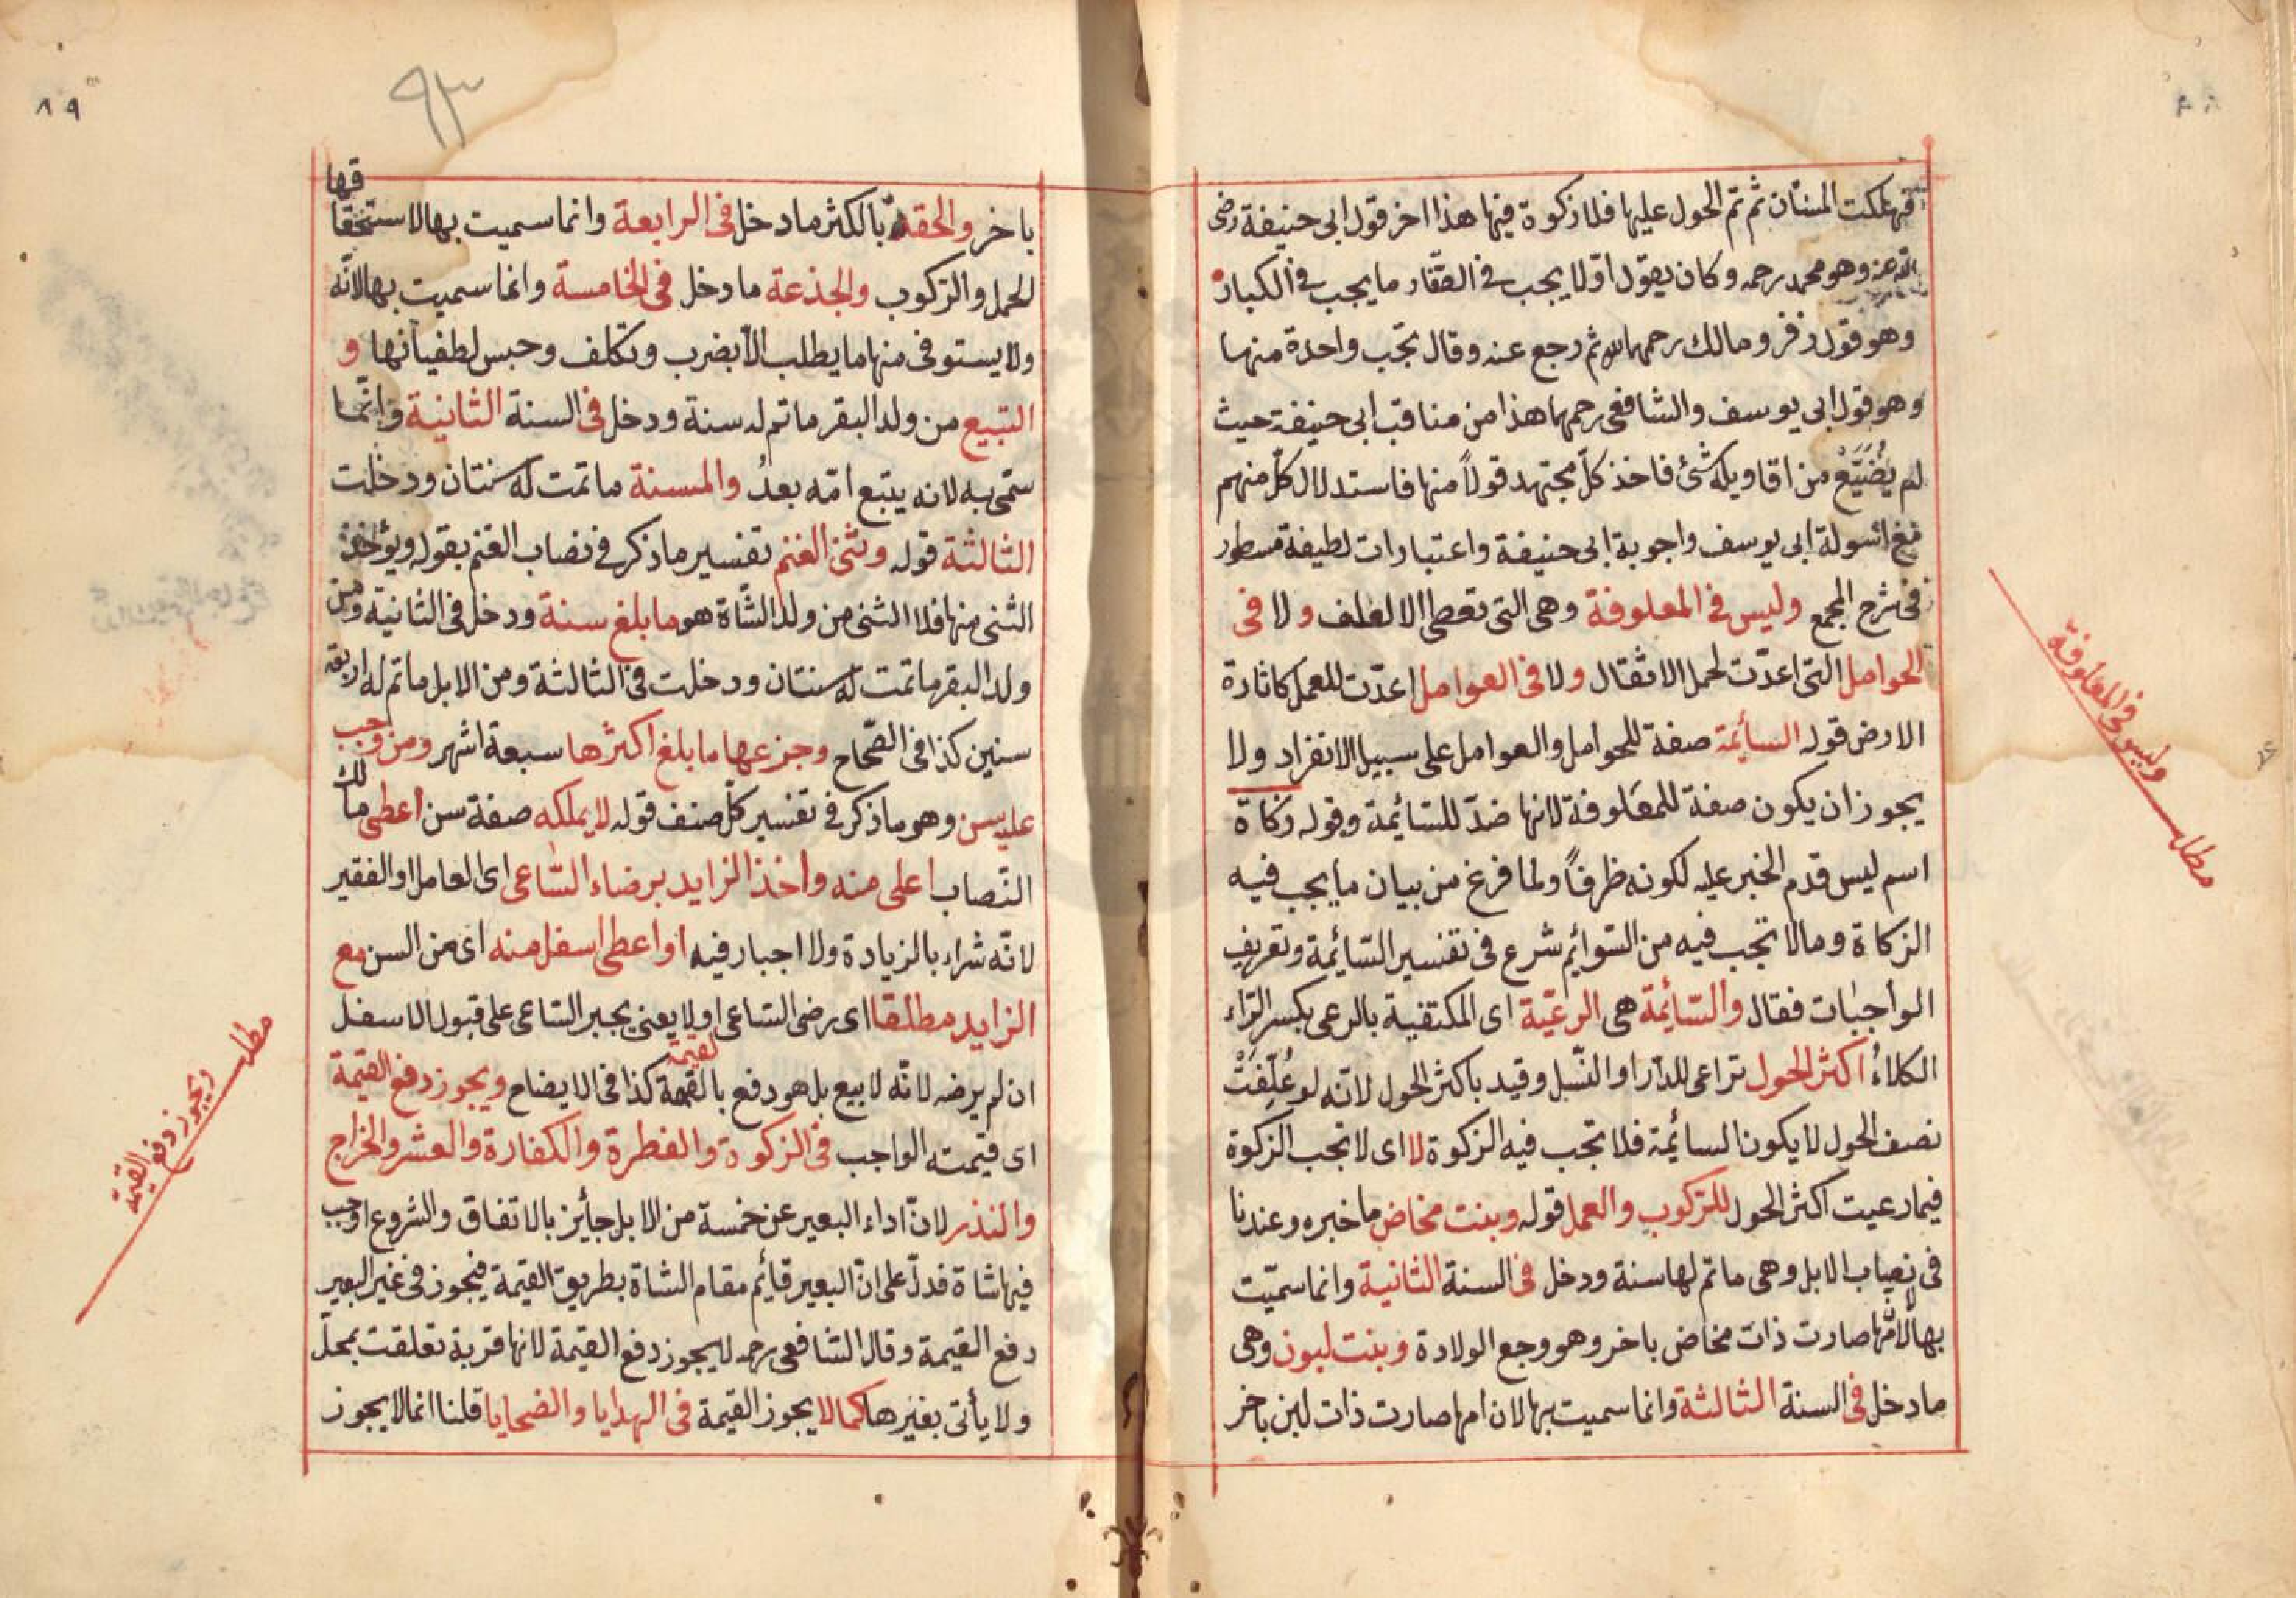 فهلكت المسنان ثم تم الحول عليها فلا زكوة فيها هذا اخر قول ابى حنيفة رضى
الله عنه وهو محمد رحمه وكان يقول اولا يجب فى الصغار ما يجب فى الكبار
وهو قول زفر ومالك رحمهما الله ثم رجع عنه وقال تجب واحدة منها
وهو قول ابى يوسف والشافعى رحمهما هذا من مناقب ابى حنيفة حيث
لم يُضَيَّعْ من اقاويله شئ فاخذ كلّ مجتهد قولاً منها فاستدلال كلّ منهم
مع اسولة ابى يوسف واجوبة ابى حنيفة واعتبارات لطيفة مسطور
فى شرح المجمع وليس فى المعلوفة وهى التى تعطى الا لعلف ولا فى
الحوامل التى اعدّت لحمل الاثقال ولا فى العوامل اعدّت للعمل كاثارة
الارض قوله السائمة صفة للحوامل والعوامل على سبيل الانفراد ولا
يجوز ان يكون صفة للمعلوفة لانها ضدّ للسّائمة وقوله زكاة
اسم ليس قدم الخبر عليه لكونه ظرفاً ولما فرغ من بيان ما يجب فيه
الزكاة وما لا تجب فيه من السّوايم شرع فى تفسير السّائمة وتعريف
الواجبات فقال والسّائمة هى الرعيّة اى المكتفية بالرعى بكسر الرّاء
الكلاءُ اكثر الحول تراعى للدّر او النّسل وقيد باكثر الحول لانّه لو عُلِّفَتْ
نصف الحول لا يكون السائمة فلا تجب فيه الزكوة لا اى لا تجب الزكوة
فيما رعيت اكثر الحول للرّكوب والعمل قوله وبنت مخاض ما خبره وعندنا
فى نصاب الابل وهى ما تم لها سنة ودخل فى السنة الثانية وانما سميّت
بها لانّها صارت ذات مخاض باخر وهو وجع الولادة وبنت لبون وهى
ما دخل فى السنة الثالثة وانما سميت بها لان امها صارت ذات لبن باخر
مطلب وليس فى المعلوفة
٨٩
٩٣
باخر والحقة بالكثر ما دخل فى الرابعة وانما سميت بها لاستحقاقها
الحمل والرّكوب والجذعة ما دخل فى الخامسة وانما سميت بها لانّه
ولا يستوفى منها ما يطلب الاّ بضرب وتكلف وحبس لطفيانها و
التبيع من ولد البقر ما تم له سنة ودخل فى السنة الثانية وانّما
سمّى به لانه يتبع امّه بعدُ والمسنة ما تمت له سنتان ودخلت
الثالثة قوله وثنى الغنم تفسير ما ذكر فى نصاب الغنم بقوله ويؤخذ
الثنى منها فلا الثنى من ولد الشّاة هو ما بلغ سنة ودخل فى الثانية ومن
ولد البقر ما تمت له سنتان ودخلت فى الثالثة ومن الابل ما تم له اربعة
سنين كذا فى الصّحاح وجزعها ما بلغ اكثرها سبعة اشهر ومن وجب
عليه سن وهو ما ذكر فى تفسير كلّ صنف قوله لا يملكه صفة سن اعطى مالك
النّصاب اعلى منه واخذ الزايد برضاء السّاعى اى العامل او الفقير
لانّه شراء بالزيادة ولا اجبار فيه او اعطى اسفل منه اى من السن مع
الزايد مطلقا اى رضى السّاعى اولا يعنى يجبر السّاعى على قبول الاسفل
ان لم يرضه لانّه لا بيع بل هو دفع بالقيمة كذا فى الايضاح ويجوز دفع القيمة
اى قيمته الواجب فى الزكوة والفطرة والكفارة والعشر والخراج
والنذر لانّ اداء البعير عن خمسة من الابل جايز بالاتفاق والشروع اوجب
فيها شاة فدلّ على انّ البعير قايم مقام الشاة بطريق القيمة فيجوز فى غير البعير
دفع القيمة وقال الشافعى رحمه لا يجوز دفع القيمة لانها قربة تعلقت بمحلّ
ولا يأتى بغيرها كما لا يجوز القيمة فى الهدايا والضحايا قلنا انما لا يجوز
مطلب ويجوز دفع القيمة